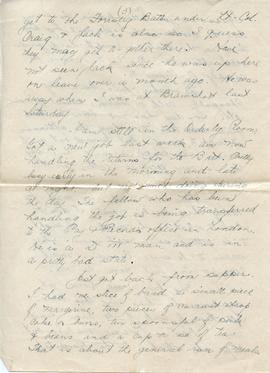 (3)
get to the Forestry Batt. under Lt-Col.
Craig & Jack is also so I guess
they may get together there. Have
not seen Jack since he was up here
on leave over a month ago. He was
away when I was at Bramshott last
Saturday.
Am still in the Orderly Room.
Got a new job last week, am now
handling the returns for the Batt. Pretty
busy early in the morning and late
at night but not much doing during
the day. The fellow who has been
handling the job is being transferred
to the Pay & Records office in London.
He is a man and is in
a pretty bad state.
Just got back from supper.
I had one slice of bread & small piece
of margarine, two pieces of
cake or buns, two spoonsful of pork
& beans and a cup or so of tea.
That is about the general run of meals